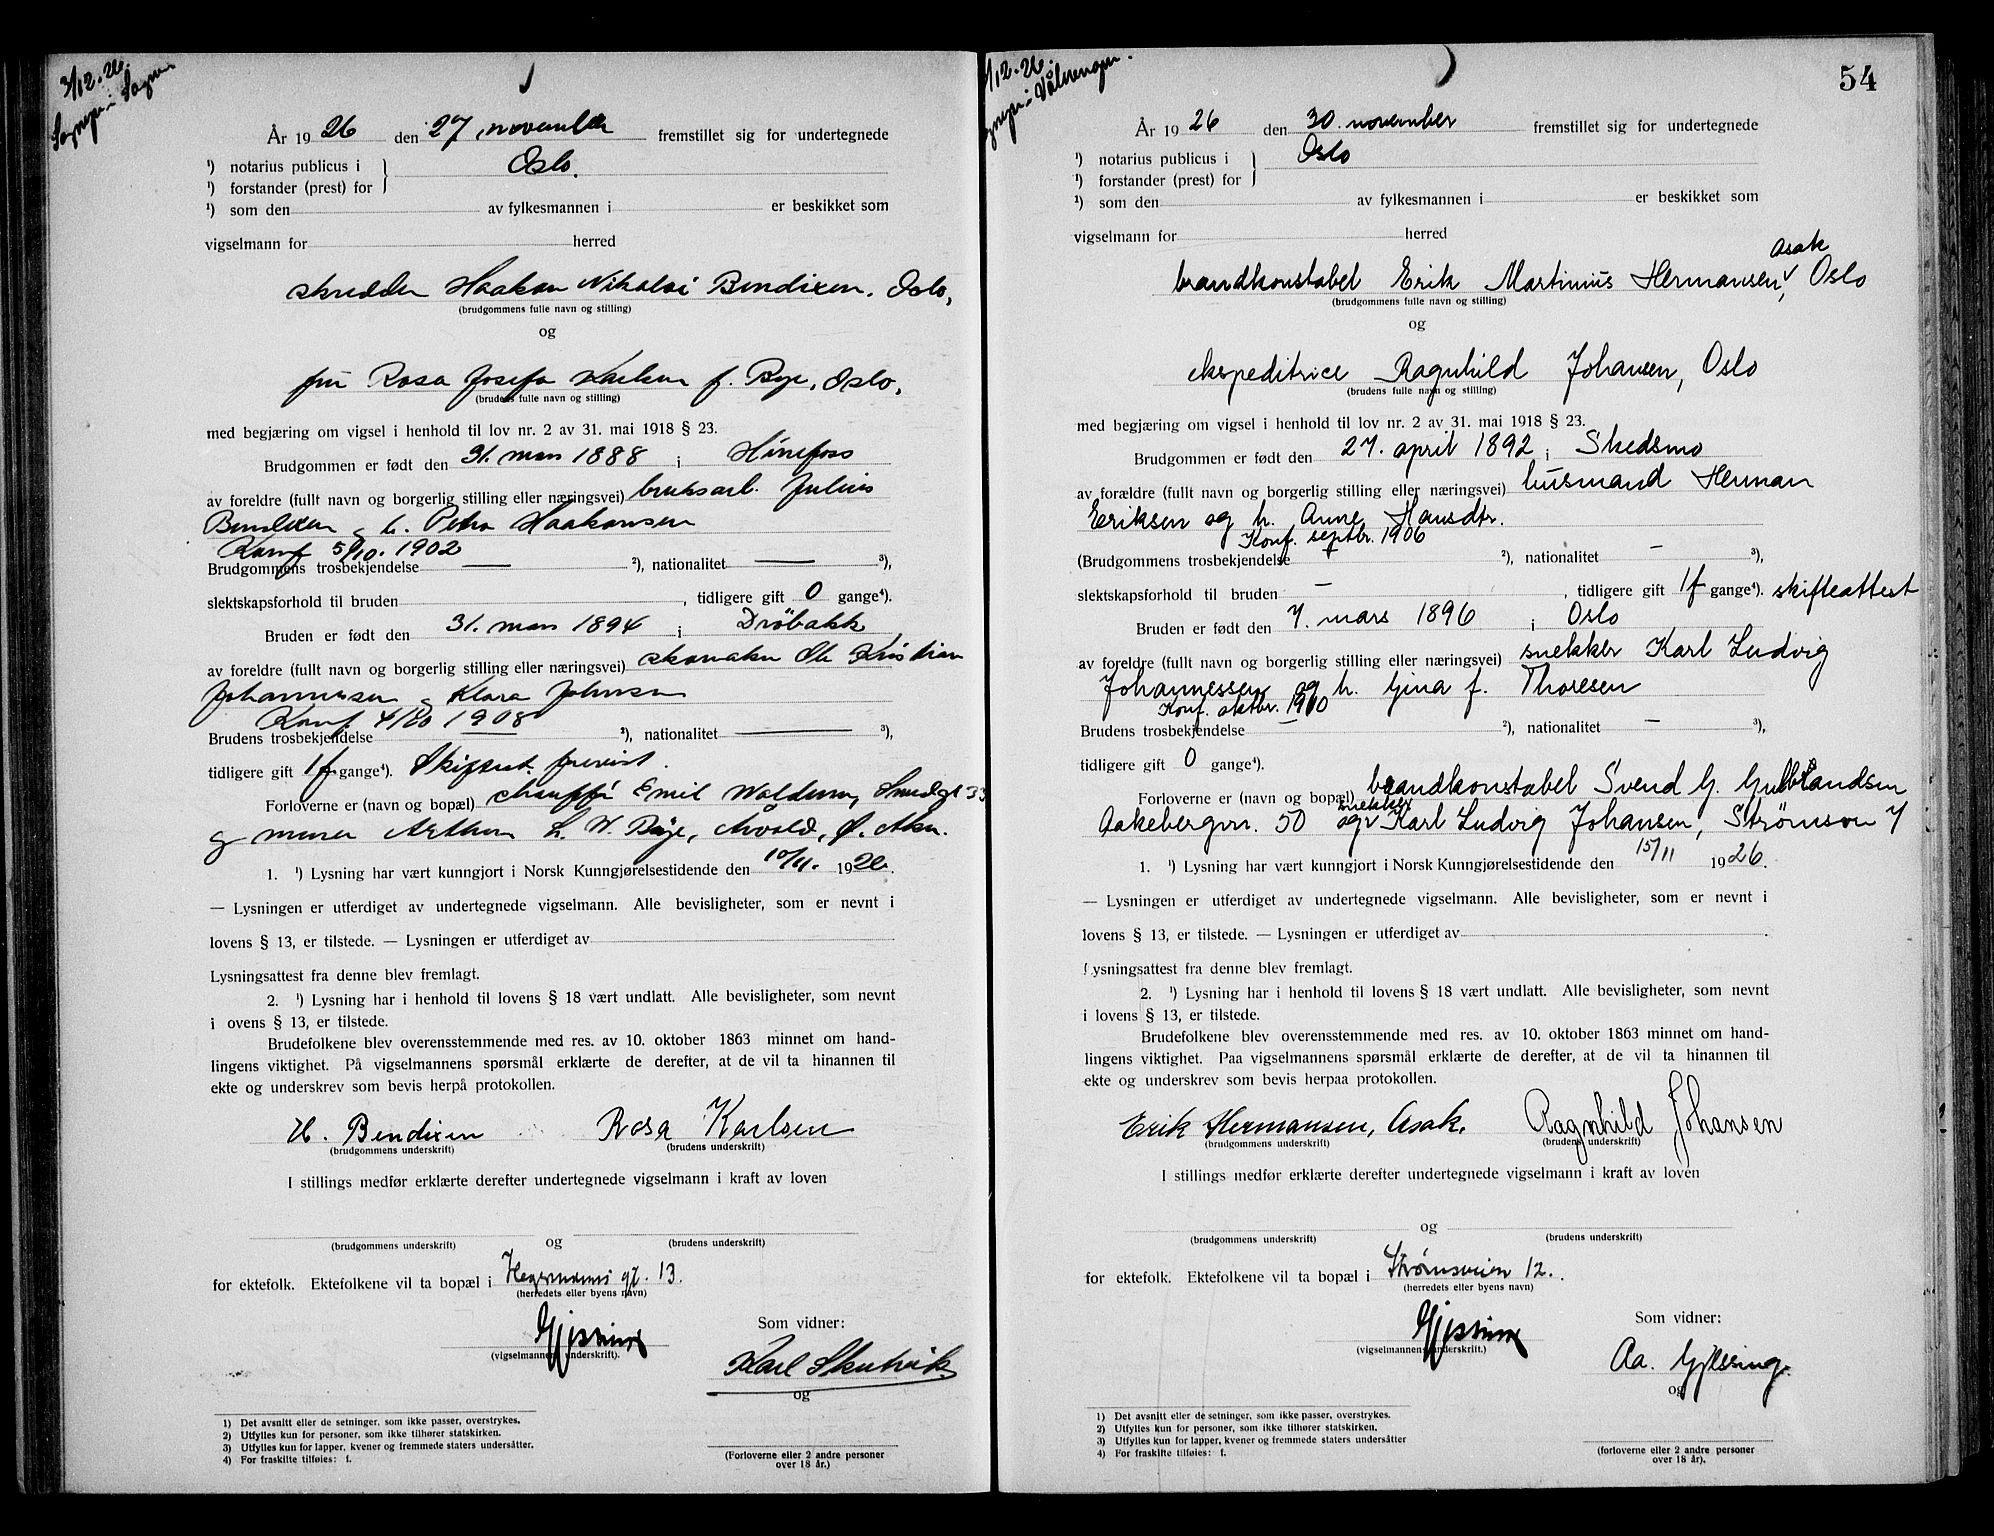 3/12.26.
Sogn
År 1926 den 27. november fremstillet sig for undertegnede
¹) notarius publicus i } Oslo.
¹) forstander (prest) for
¹) som den av fylkesmannen i er beskikket som
vigselmann for herred
skredder Haakon Nikolai Bendixen. Oslo,
(brudgommens fulle navn og stilling)
og
fru Rosa Josefa Karlsen f. Bye, Oslo,
(brudens fulle navn og stilling)
med begjæring om vigsel i henhold til lov nr. 2 av 31. mai 1918 § 23.
Brudgommen er født den 31. mars 1888 i Hönefoss
av foreldre (fullt navn og borgerlig stilling eller næringsvei) bruksarb. Julius
Bendixen og h. Petra Haakonsen
Konf 5/10. 1902
Brudgommens trosbekjendelse — ²), nationalitet — ³),
slektskapsforhold til bruden , tidligere gift 0 gange⁴).
Bruden er født den 31. mars 1894 i Dröbakk
av foreldre (fullt navn og borgerlig stilling eller næringsvei) skomaker Ole Kristian
Johannesen og Klara Johnsen
Konf 4/10 1908
Brudens trosbekjendelse — ²), nationalitet — ³),
tidligere gift 1f gange⁴). Skifteat. forevist.
Forloverne er (navn og bopæl) chauffør Emil Waldum, Smedgt 33
og murer Arthur L. W. Bye, Arvold, Ø. Aker.
1. ¹) Lysning har vært kunngjort i Norsk Kunngjørelsestidende den 10/11. 1926.
— Lysningen er utferdiget av undertegnede vigselmann. Alle bevisligheter, som er nevnt i
lovens § 13, er tilstede. — Lysningen er utferdiget av
Lysningsattest fra denne blev fremlagt.
2. ¹) Lysning har i henhold til lovens § 18 vært undlatt. Alle bevisligheter, som nevnt
i ovens § 13, er tilstede.
Brudefolkene blev overensstemmende med res. av 10. oktober 1863 minnet om hand-
lingens viktighet. På vigselmannens spørsmål erklærte de derefter, at de vil ta hinannen til
ekte og underskrev som bevis herpå protokollen.
H. Bendixen Rosa Karlsen
(brudgommens underskrift) (brudens underskrift)
I stillings medfør erklærte derefter undertegnede vigselmann i kraft av loven
og
(brudgommens underskrift) (brudens underskrift)
for ektefolk. Ektefolkene vil ta bopæl i Hegermanns gt. 13.
(herredets eller byens navn)
Gjessing
(vigselmannens underskrift).
Som vidner:
Karl Skutvik
og
1) Det avsnitt eller de setninger, som ikke passer, overstrykes.
2) Utfylles kun for personer, som ikke tilhører statskirken.
3) Utfylles kun for lapper, kvener og fremmede staters undersåtter.
4) For fraskilte tilføies: f.
(Forloverne eller 2 andre personer
over 18 år.)
54
/12.26.
i Vålerengen.
År 1926 den 30. november fremstillet sig for undertegnede
¹) notarius publicus i } Oslo
¹) forstander (prest) for
¹) som den av fylkesmannen i er beskikket som
vigselmann for herred
Asak
brandkonstabel Erik Martinius Hermansen, Oslo
(brudgommens fulle navn og stilling)
og
ekspeditrice Ragnhild Johansen, Oslo
(brudens fulle navn og stilling)
med begjæring om vigsel i henhold til lov nr. 2 av 31. mai 1918 § 23.
Brudgommen er født den 27. april 1892 i Skedsmo
av forældre (fullt navn og borgerlig stilling eller næringsvei) husmand Herman
Eriksen og h. Anne Hansdtr.
Konf. septbr. 1906
(Brudgommens trosbekjendelse — ²), nationalitet — ³),
slektskapsforhold til bruden — , tidligere gift 1f gange⁴). skifteattest
Bruden er født den 7. mars 1896 i Oslo
av foreldre (fullt navn og borgerlig stilling eller næringsvei) snekker Karl Ludvig
Johannessen og h. Gina f. Thoresen
Konf. oktbr. 1910
Brudens trosbekjendelse — ²), nationalitet — ³),
tidligere gift 0 gange⁴).
Forloverne er (navn og bopæl) brandkonstabel Svend G. Gulbrandsen
snekker
Aakebergvn. 50 og Karl Ludvig Johansen, Strømsvn 7
1. ¹) Lysning har vært kunngjort i Norsk Kunngjørelsestidende den 15/11 1926.
— Lysningen er utferdiget av undertegnede vigselmann. Alle bevisligheter, som er nevnt i
lovens § 13, er tilstede. — Lysningen er utferdiget av
Lysningsattest fra denne blev fremlagt.
2. ¹) Lysning har i henhold til lovens § 18 vært undlatt. Alle bevisligheter, som nevnt
i lovens § 13, er tilstede.
Brudefolkene blev overensstemmende med res. av 10. oktober 1863 minnet om hand-
lingens viktighet. Paa vigselmannens spørsmål erklærte de derefter, at de vil ta hinannen til
ekte og underskrev som bevis herpaa protokollen.
Erik Hermansen, Asak. Ragnhild Johansen
(brudgommens underskrift) (brudens underskrift)
I stillings medfør erklærte derefter undertegnede vigselmann i kraft av loven
og
(brudgommens underskrift) (brudens underskrift)
for ektefolk. Ektefolkene vil ta bopæl i Strømsveien 12.
(herredets eller byens navn)
Gjessing
(vigselmannens underskrift.)
Som vidner:
Aa. Gjessing.
og
1) Det avsnitt eller de setninger, som ikke passer, overstrykes.
2) Utfylles kun for personer, som ikke tilhører statskirken.
3) Utfylles kun for lapper, kvener og fremmede staters undersåtter
4) For fraskilte tilføies: f.
(forloverne eller 2 andre personer
over 18 år).